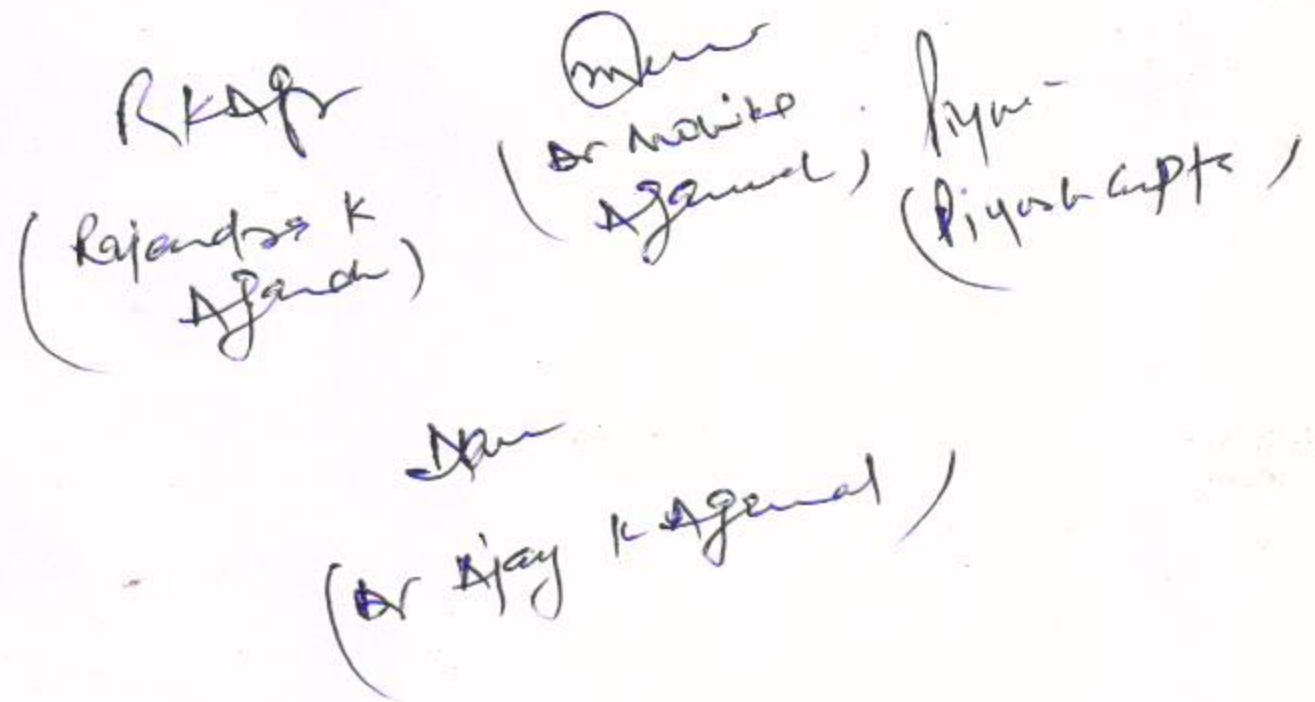 RKAgr
(Rajendra K
Agarwal)
(Dr Monika
Agarwal)
Piyu
(Piyush Gupta)
(Dr Ajay K Agarwal)